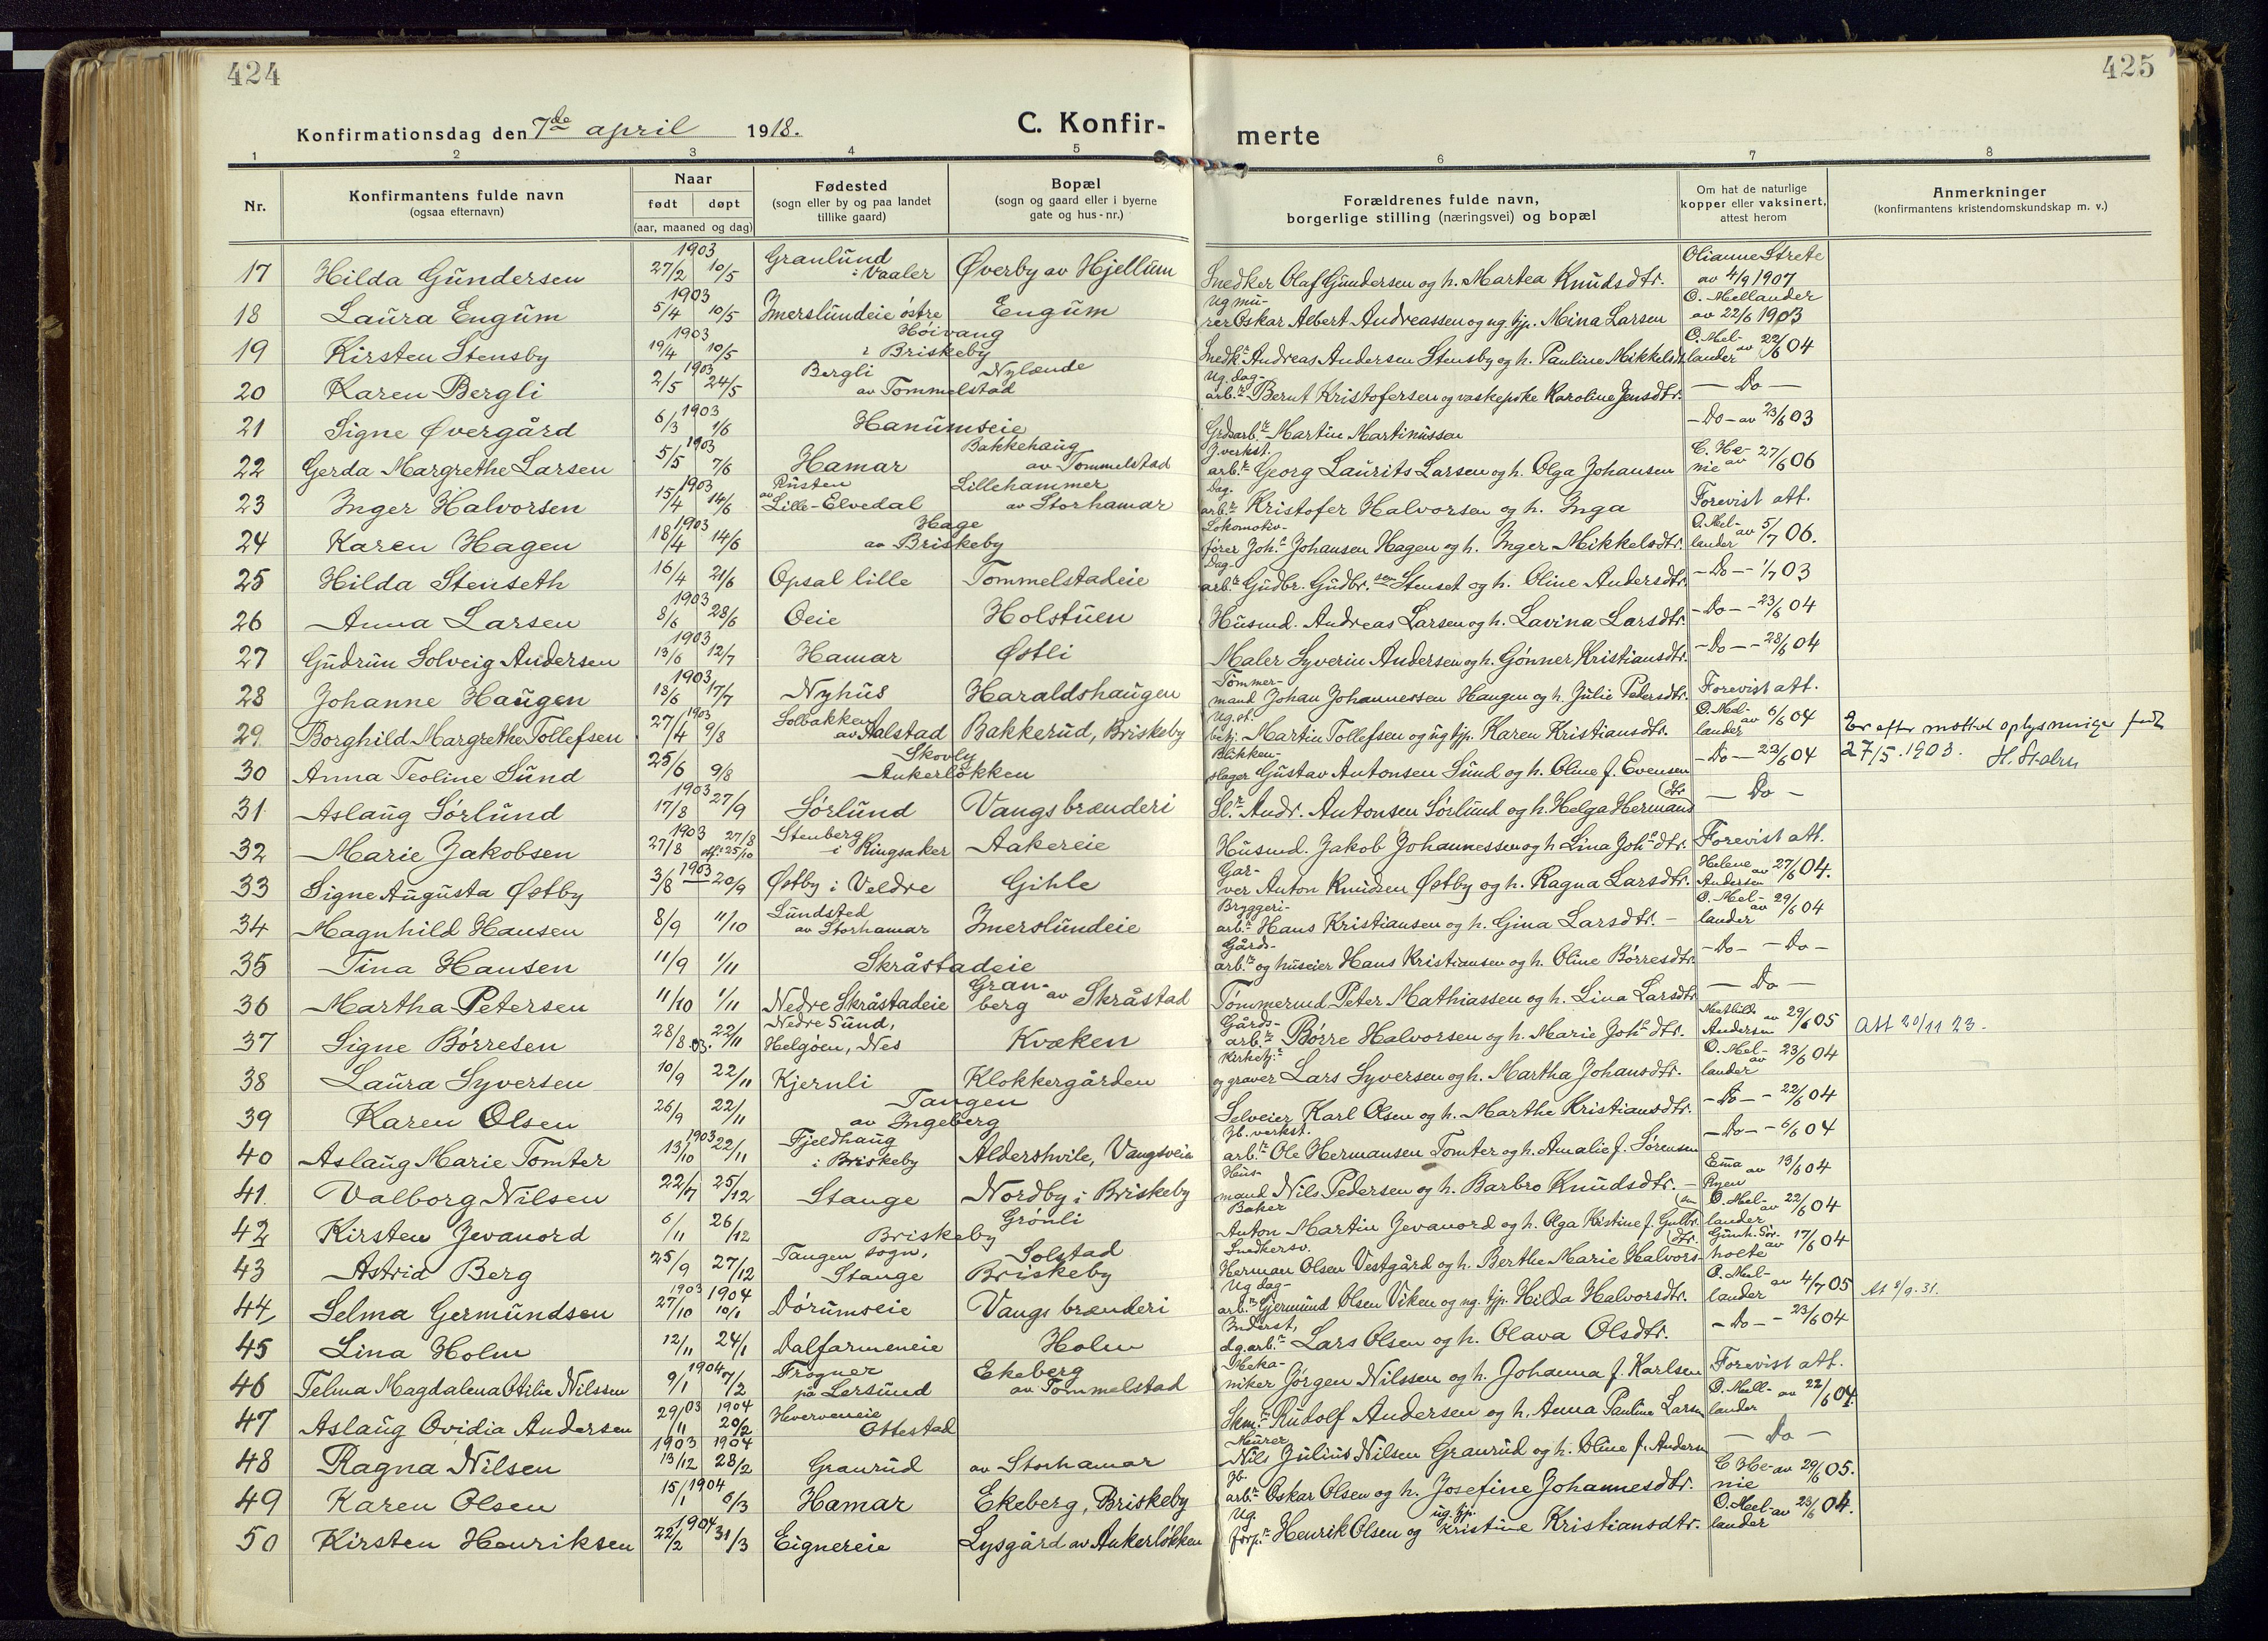 424
425
Konfirmationsdag den 7de april 1918.
C. Konfirmerte
1 2 3 4 5 6 7 8
Nr.
Konfirmantens fulde navn
(ogsaa efternavn)
Naar
født døpt
(aar, maaned og dag)
Fødested
(sogn eller by og paa landet
tillike gaard)
Bopæl
(sogn og gaard eller i byerne
gate og hus-nr.)
Forældrenes fulde navn,
borgerlige stilling (næringsvei) og bopæl
Om hat de naturlige
kopper eller vaksinert,
attest herom
Anmerkninger
(konfirmantens kristendomskundskap m. v.)
17 Hilda Gundersen 1903 27/2 10/5 Granlund i Vaaler Øverby av Hjellum Snedker Olaf Gundersen og h. Martea Knudsdtr. Olianne Strete av 4/9 1907
18 Laura Engum 1903 5/4 10/5 Imerslundeie østre Engum Ug murer Oskar Albert Andreassen og ug. tjp. Mina Larsen O. Mellander av 22/6 1903
19 Kirsten Stensby 1903 19/4 10/5 Høivang i Briskeby Snedkr. Andreas Andersen Stensby og h. Pauline Mikkelsdtr. O. Mellander av 22/6 04
20 Karen Bergli 1903 2/5 24/5 Bergli Nylænde av Tommelstad Ug. dagarb.r Bernt Kristofersen og vaskepike Karoline Jensdtr. — Do —
21 Signe Øvergård 1903 6/3 1/6 Hanumseie Grdsarb.r Martin Martinussen — Do — av 23/6 03
22 Gerda Margrethe Larsen 1903 5/5 7/6 Hamar Bakkehaug av Tommelstad J. verkst. arb.r Georg Laurits Larsen og h. Olga Johansen C. Henie av 27/6 06
23 Inger Halvorsen 1903 15/4 14/6 Rusten av Lille-Elvedal Lillehammer av Storhamar Dagarb.r Kristofer Halvorsen og h. Inga Forevist att.
24 Karen Hagen 1903 18/4 14/6 Hage av Briskeby Lokomotivfører Joh.s Johansen Hagen og h. Inger Mikkelsdtr. O. Mellander av 5/7 06.
25 Hilda Stenseth 16/4 21/6 Opsal lille Tommelstadeie Dagarb.r Gudbr. Gudbr.sen Stenset og h. Oline Andersdtr. — Do — - 1/7 03
26 Anna Larsen 1903 8/6 28/6 Oeie Holstuen Husmd. Andreas Larsen og h. Lavina Larsdtr. — Do — - 23/6 04
27 Gudrun Solveig Andersen 1903 13/6 12/7 Hamar Østli Maler Syverin Andersen og h. Gønner Kristiansdtr. — Do — - 28/6 04
28 Johanne Haugen 1903 18/6 17/7 Nyhus Haraldshaugen Tømmermand Johan Johannessen Haugen og h. Julie Petersdtr. Forevist att.
29 Borghild Margrethe Tollefsen 1903 27/4 9/8 Solbakken av Aalstad Bakkerud, Briskeby Ug. st. betj. Martin Tollefsen og ug tjp. Karen Kristiansdtr. O. Mellander av 6/6 04 Er efter mottat oplysninger født 27/5. 1903.
30 Anna Teoline Sund 25/6 9/8 Skovly Ankerløkken Blikkenslager Gustav Antonsen Sund og h. Oline f. Evensen — Do — 23/6 04
31 Aslaug Sørlund 1903 17/8 27/9 Sørlund Vangs brænderi Sl.r Andr. Antonsen Sørlund og h. Helga Hermansdtr. — Do —
32 Marie Jakobsen 1903 27/8 27/8 25/10 Stenberg i Ringsaker Aakereie Husmd. Jakob Johannessen og h Lina Joh.s dtr. Forevist att.
33 Signe Augusta Østby 1903 3/8 20/9 Østby i Veldre Gihle Garver Anton Knudsen Østby og h. Ragna Larsdtr. Helene Andersen av 27/6 04.
34 Magnhild Hansen 8/9 11/10 Lundsted av Storhamar Imerslundeie Bryggeriarb.r Hans Kristiansen og h. Gina Larsdtr. — O. Mellander av 29/6 04
35 Tina Hansen 11/9 1/11 Skråstadeie Gårdsarb.r og huseier Hans Kristiansen og h. Oline Børresdtr — Do — — Do —
36 Martha Petersen 11/10 1/11 Nedre Skråstadeie Granberg av Skråstad Tømmermd. Peter Mathiassen og h. Lina Larsdtr — Do —
37 Signe Børresen 28/8 03. 22/11 Nedre Sund, Helgøen, Nes Kvæken Gårdsarb.r Børre Halvorsen og h. Marie Joh.s dtr. Mathilde Andersen av 29/6 05 Att 20/11 23.
38 Laura Syversen 10/9 22/11 Kjernli Klokkergården Kirketj.r og graver Lars Syversen og h. Martha Johansdtr. O. Mellander av 23/6 04
39 Karen Olsen 26/9 22/11 Tangen av Ingeberg Selveier Karl Olsen og h. Marthe Kristiansdtr. — Do — - 22/6 04
40 Aslaug Marie Tomter 1903 13/10 22/11 Fjeldhaug i Briskeby Aldershvile, Vangsveien Jb. verkst. arb.r Ole Hermansen Tomter og h. Amalie f. Sørensen — Do — - 6/6 04
41. Valborg Nilsen 22/7 25/12 Stange Nordby i Briskeby Husmand Nils Pedersen og h. Barbro Knudsdtr. — Ema Ryen av 13/6 04
42 Kirsten Jevanord 6/11 26/12 Grønli Briskeby Baker Anton Martin Jevanord og h. Olga Kistine f. Gulbr.sen O. Mellander av 22/6 04
43 Astrid Berg 25/9 27/12 Tangen sogn, Stange Solstad Briskeby Snedkersv. Herman Olsen Vestgård og h. Berthe Marie Halvorsdtr. av 17/6 04
44 Selma Germundsen 1903 27/10 1904 10/1 Dørumseie Vangs brænderi Ug dagarb.r Gjermund Olsen Viken og ug. tjp. Hilda Halvorsdtr. O. Mellander av 4/7 05 At 8/9. 31.
45 Lina Holm 12/11 24/1 Dalfarmeneie Holm Inderst, dg.arb.r Lars Olsen og h. Olava Olsdtr. — Do — - 23/6 04
46 Telma Magdalena Otilie Nilssen 1904 9/1 7/2 Frogner på Lersund Ekeberg av Tommelstad Mekaniker Jørgen Nilssen og h. Johanna f. Karlsen Forevist att.
47 Aslaug Ovidia Andersen 29/11 03 1904 20/2 Hverveneie Ottestad Skm.r Rudolf Andersen og h. Anna Pauline Larsen O. Mellander av 22/6 04.
48 Ragna Nilsen 1903 13/12 1904 28/2 Granrud av Storhamar Murer Nils Julius Nilsen Granrud og h. Oline f. Andersen — Do —
49 Karen Olsen 15/1 1904 6/3 Hamar Ekeberg, Briskeby Jb. arb.r Oskar Olsen og h. Josefine Johannesdtr. C Henie av 29/6 05.
50 Kirsten Henriksen 1904 22/2 31/3 Eignereie Lysgård av Ankerløkken Ug. forp.r Henrik Olsen og ug. tjp. Kristine Kristiansdtr. O. Mellander av 23/6 04.